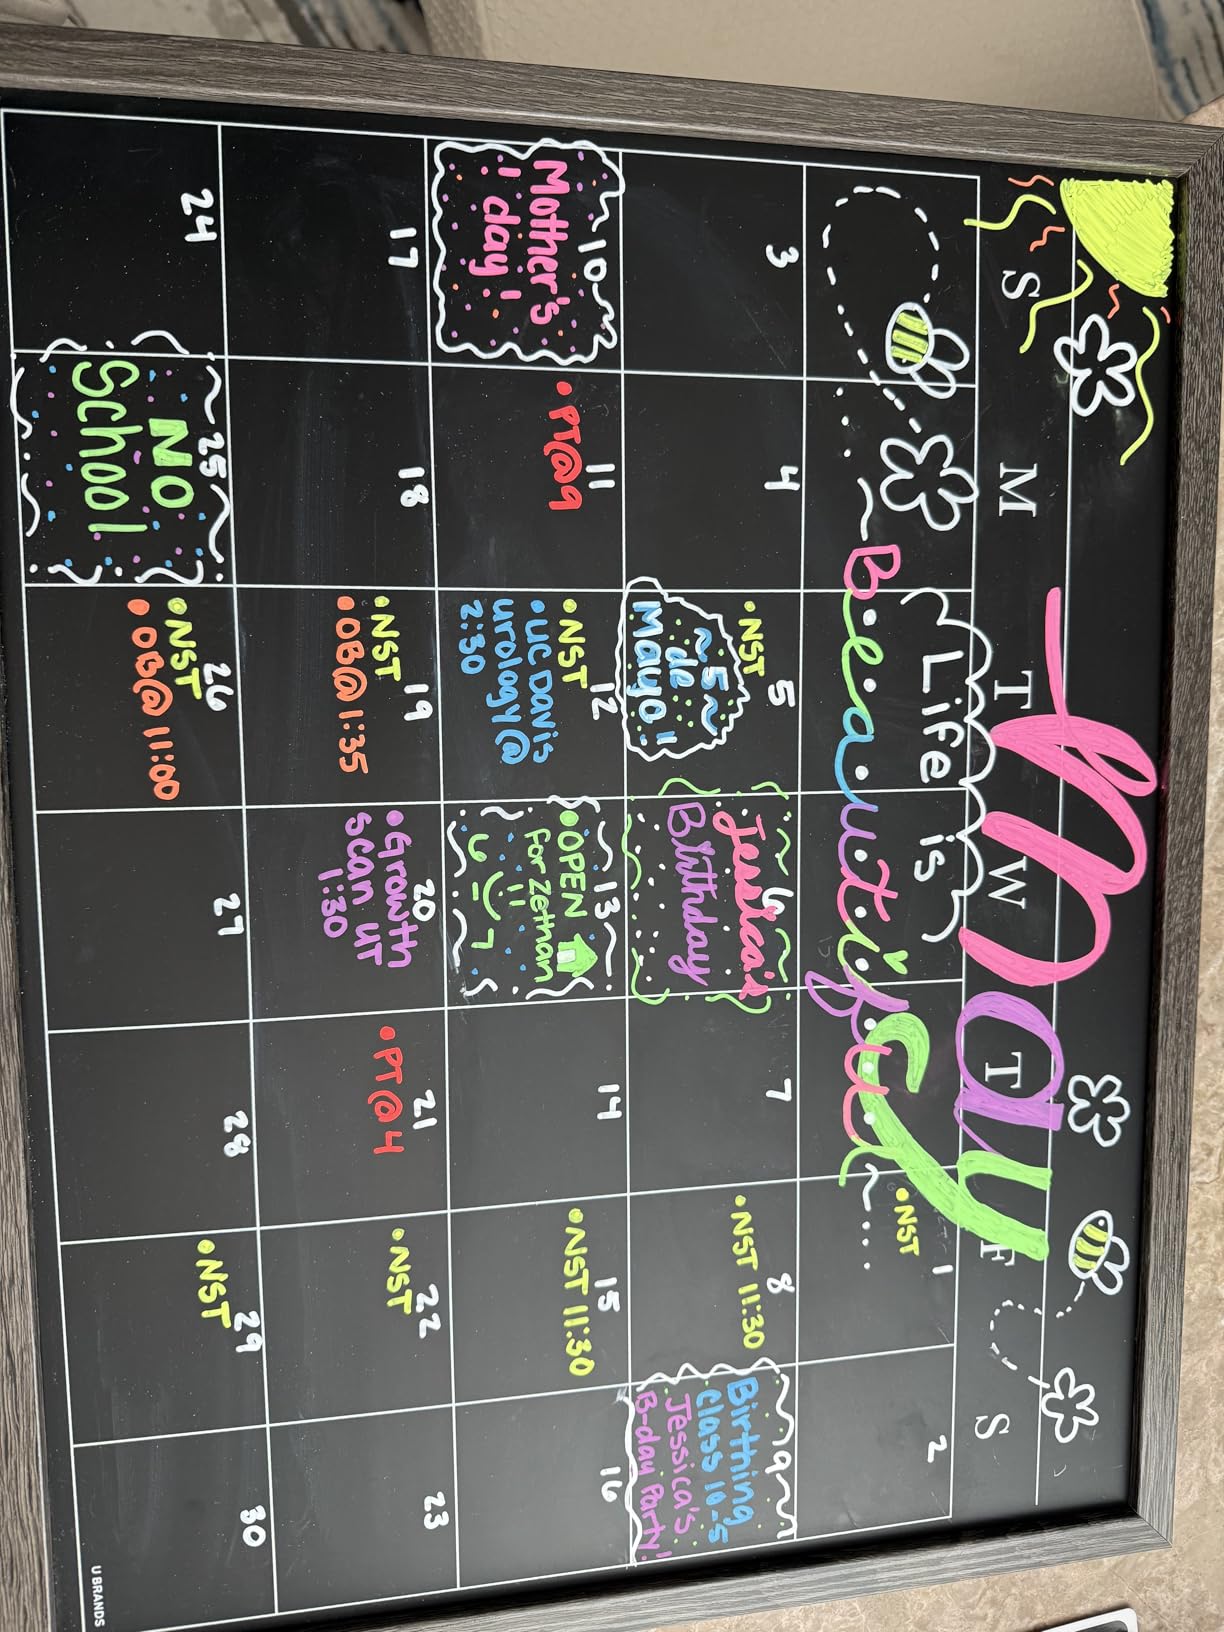 May
S M T W T F S
Life is
~Beautiful~...
1
• NST
2
3
4
5
• NST
~5~
de
Mayo!
6
Jessica's
Birthday
7
8
• NST 11:30
~9~
Birthing
Class 10-5
Jessica's
B-day Party!
~10~
Mother's
! day !
11
• PT@9
12
• NST
• UC Davis
urology @
2:30
~13~
• OPEN
for Zethan
!!
14
15
• NST 11:30
16
17
18
19
• NST
• OB@ 1:35
20
• Growth
scan UT
1:30
21
• PT@4
22
• NST
23
24
25
NO
School
26
• NST
• OB@ 11:00
27
28
29
• NST
30
U BRANDS